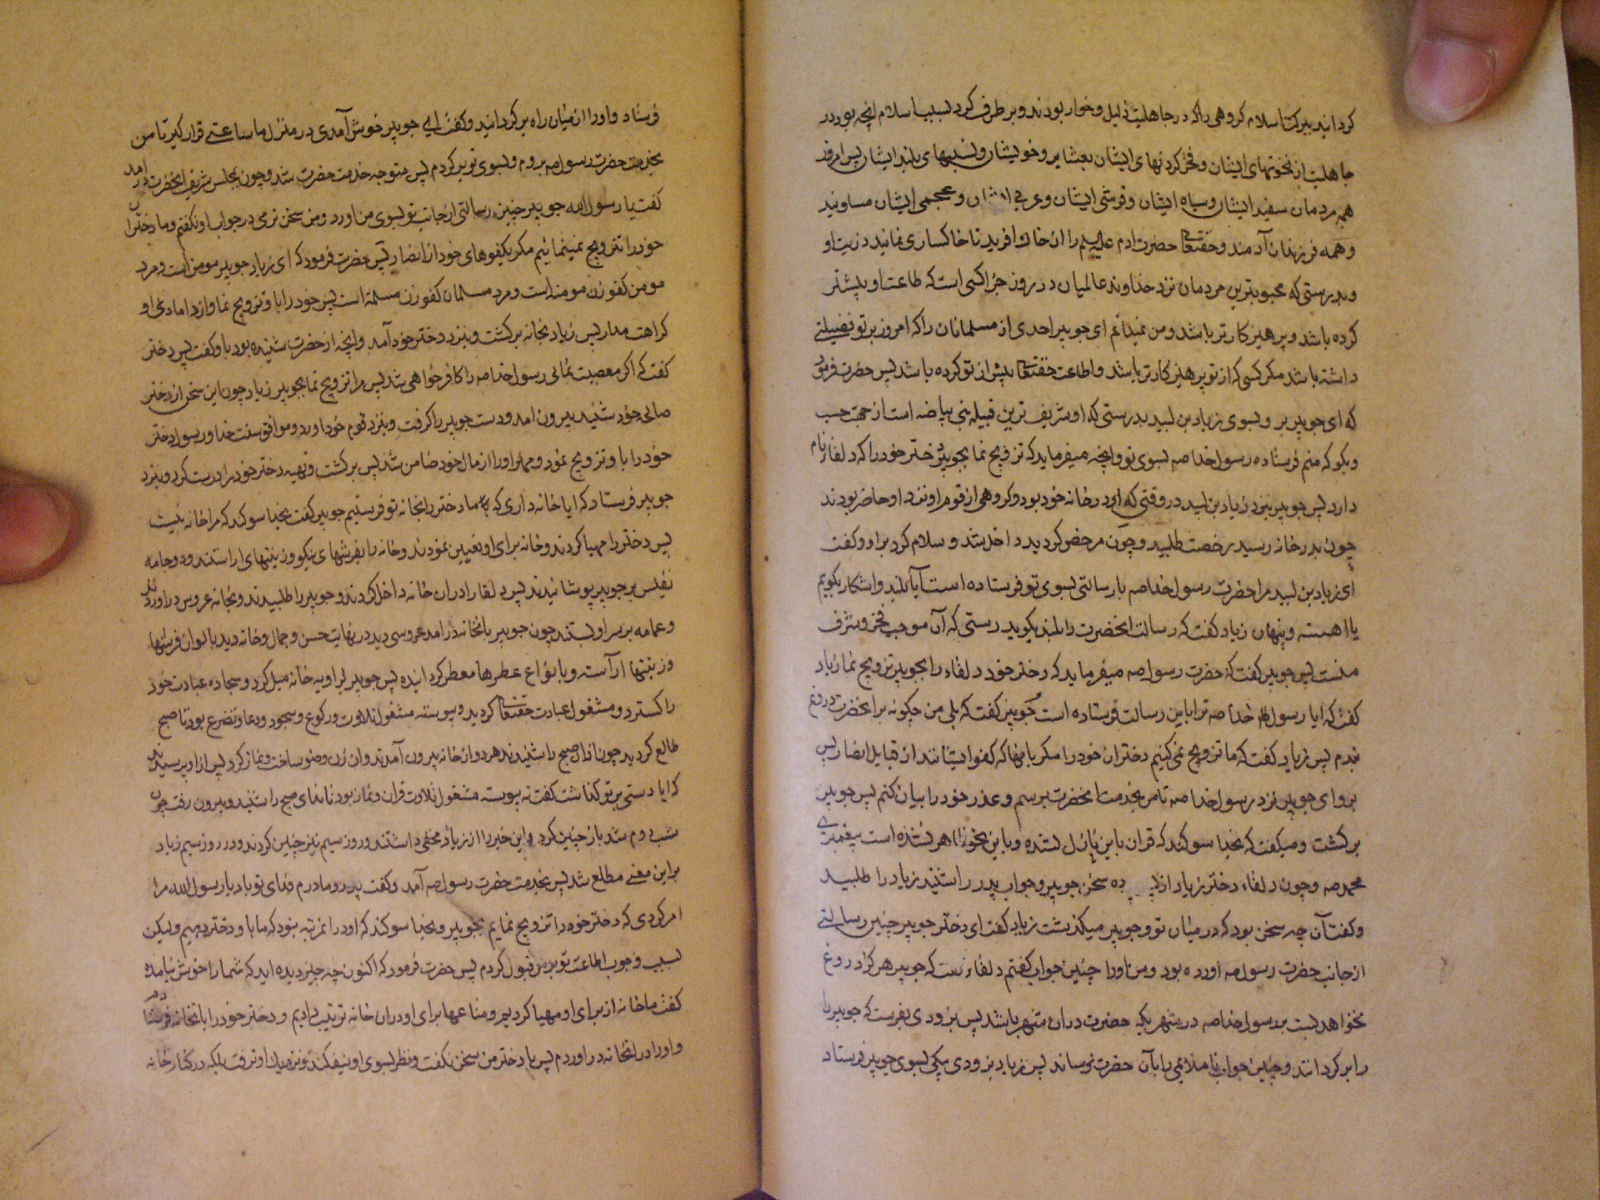 گردانید ببرکت اسلام گروهی را که در جاهلیت ذلیل و خوار بودند و بر طرف کرد بسبب اسلام آنچه بود در
جاهلیت از نخوتهای ایشان و فخر کردنهای ایشان بعشایر و خویشان و نسبهای بلند ایشان پس امروز
همه مردمان سفید ایشان و سیاه ایشان و قرشی ایشان و عربی ایشان و عجمی ایشان مساویند
و همه فرزندان آدمند و حقتعالی حضرت ادم علیه السلم را از خاک افرید
و بدرستی که محبوبترین مردمان نزد خداوند عالمیان در روز جزا کسی است که طاعت او بیشتر
کرده باشد و پرهیزکارتر باشد و من نمیدانم ای جویبر احدی از مسلمانان را که امروز بر تو فضیلتی
داشته باشد مگر کسی که از تو پرهیزکارتر باشد و اطاعت حقتعالی بیش از تو کرده باشد پس حضرت فرمود
که ای جویبر برو بسوی زیاد بن لبید بدرستی که او شریف ترین قبیله بنی بیاضه است از جهت حسب
و بگو که منم فرستاده رسول خدا صه بسوی تو و اینچه میفرماید که تزویج نما بجویبر دختر خود را که دلفاء نام
دارد پس جویبر بنزد زیاد بن لبید در وقتی که او در خانه خود بود و گروهی از قوم او نزد او حاضر بودند
چون بدر خانه رسید رخصت طلبید و چون مرخص گردید داخل شد و سلام کرد بر او و گفت
ای زیاد بن لبید مرا حضرت رسول خدا صه بارسالتی بسوی تو فرستاده است آیا بلند و اشکار بگویم
یا اهسته و پنهان زیاد گفت که رسالت انحضرت را بلند بگوید رستی که آن موجب فخر و شرف
منست پس جویبر گفت که حضرت رسول صه میفرماید که دختر خود دلفاء را بجویبر تزویج نما زیاد
گفت که ایا رسول خدا صه ترا باین رسالت فرستاده است جویبر گفت که بلی من چگونه بر انحضرت دروغ
بندم پس زیاد گفت که ما تزویج نمی کنیم دختران خود را مگر بانها که کفو ایشانند از قبایل انصار پس
برو ای جویبر نزد رسول خدا صه تا من بخدمت انحضرت برسم و عذر خود را بیان کنم پس جویبر
برگشت و میگفت که بخدا سوگند که قران باین نازل نشده و باین نحو ظاهر نشده است پیغمبری
محمد صه و چون دلفاء دختر زیاد از پس پرده سخن جویبر و جواب پدر را شنید زیاد را طلبید
و گفت آن چه سخن بود که در میان تو و جویبر میگذشت زیاد گفت ای دختر جویبر چنین رسالتی
از جانب حضرت رسول صه اورده بود و من او را چنین جواب گفتم دلفاء گفت که جویبر هرگز دروغ
نخواهد بست بر رسول خدا صه در شهری که حضرت دران شهر باشد پس بزودی بفرست که جویبر را
را برگردانند و چنین جواب نا ملایمی را بآن حضرت نرساند پس زیاد بزودی پیکی بسوی جویبر فرستاد
فرستاد و او را از میان راه برگردانید و گفت ای جویبر خوش آمدی در منزل ما ساعتی قرار گیر تا من
بخدمت حضرت رسول صه بروم و بسوی تو برگردم پس متوجه خدمت حضرت شد و چون بمجلس شریف انحضرت در آمد
گفت یا رسول الله جویبر چنین رسالتی از جانب تو بسوی من اورد و من سخن نرمی در جواب او نگفتم و ما دختران
خود را تزویج نمینمائیم مگر بکفوهای خود از انصار پس حضرت فرمود که ای زیاد جویبر مومن است و مرد
مومن کفو زن مومنه است و مرد مسلمان کفو زن مسلمه است پس دختر خود را باو تزویج نما و از دامادی او
کراهت مدار پس زیاد بخانه برگشت و بنزد دختر خود آمد و انچه از حضرت شنیده بود باو گفت پس دختر
گفت که اگر معصیت نمائی رسول خدا صه را کافر خواهی شد پس مرا تزویج نما بجویبر زیاد چون این سخن از دختر
صالحه خود شنید بیرون امد و دست جویبر را گرفت و بنزد قوم خود اورد و موافق سنت خدا و رسول دختر
خود را باو تزویج نمود و مهر او را از مال خود ضامن شد پس برگشت و تهیه دختر خود را درست کرد و بنزد
جویبر فرستاد که ایا خانه داری که ما دختر را بخانه تو فرستیم جویبر گفت بخدا سوگند که مرا خانه نیست
پس دختر را مهیا کردند و خانه برای او تعیین نمودند و خانه را بفرشهای نیکو و زینتهای اراستند و دو جامه
نفیس بر جویبر پوشانیدند پس دلفا را دران خانه داخل کردند و جویبر را طلبیدند و بخانه عروس در اوردند
و عمامه بر سر او بستند چون جویبر بانخانه در امد عروسی دید در نهایت حسن و جمال و خانه دید بالوان فرشها
و زینتها آراسته و بانواع عطرها معطر گردانیده پس جویبر بزاویه خانه میل کرد و سجاده عبادت خود
را گسترد و مشغول عبادت حقتعالی گردید و پیوسته مشغول تلاوت و رکوع و سجود و دعا و تضرع بود تا صبح
طالع گردید چون اذان صبح را شنیدند هر دو از خانه بیرون آمدند و ان زن وضو ساخت و نماز کرد پس از او پرسیدند
که ایا دستی بر تو گذاشت گفت نه پیوسته مشغول تلاوت قران و نماز بود تا ندای صبح را شنید و بیرون رفت چون
شب دوم شد باز چنین کرد و این خبر را از زیاد مخفی داشتند و روز سیم نیز چنین کردند و در روز سیم زیاد
بر این معنی مطلع شد پس بخدمت حضرت رسول صه آمد و گفت پدر و مادرم فدای تو باد یا رسول الله مرا
امر کردی که دختر خود را تزویج نمایم بجویبر و بخدا سوگند که او در ان مرتبه نبود که ما باو دختر دهیم ولیکن
بسبب وجوب اطاعت تو بر من قبول کردم پس حضرت فرمود که اکنون چه چیز دیده اید که شما را خوش نیامده
گفت ما خانه از برای او مهیا کردیم و متاعها برای او دران خانه ترتیب دادیم و دختر خود را بانخانه فرستادم
و او را در انخانه در اوردم پس با دختر من سخن نگفت و نظر بسوی او نیفکند و نزدیک او نرفت بلکه در کنار خانه